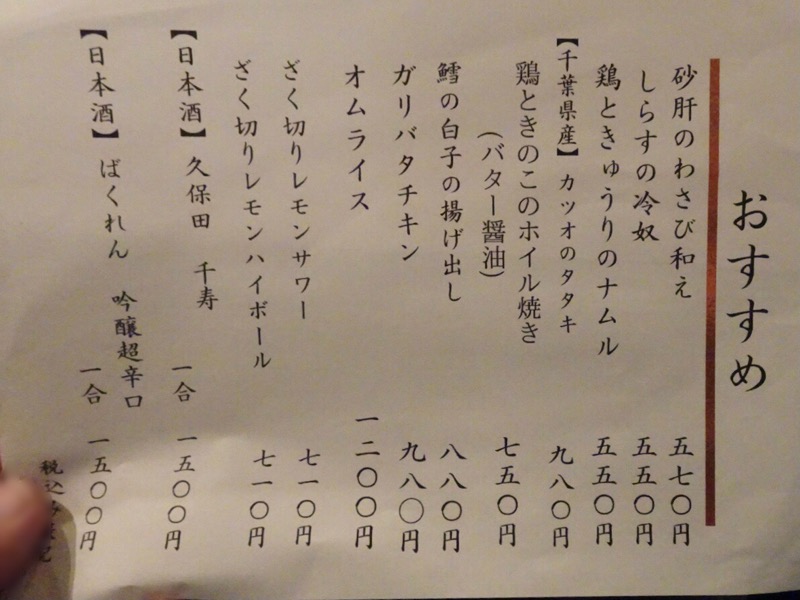 おすすめ
砂肝のわさび和え 五七〇円
しらすの冷奴 五五〇円
鶏ときゅうりのナムル 五五〇円
【千葉県産】カツオのタタキ 九八〇円
鶏ときのこのホイル焼き
(バター醤油) 七五〇円
鱈の白子の揚げ出し 八八〇円
ガリバタチキン 九八〇円
オムライス 一二〇〇円
ざく切りレモンサワー 七一〇円
ざく切りレモンハイボール 七一〇円
【日本酒】久保田 千寿 一合 一五〇〇円
【日本酒】ばくれん 吟醸超辛口
一合 一五〇〇円
税込